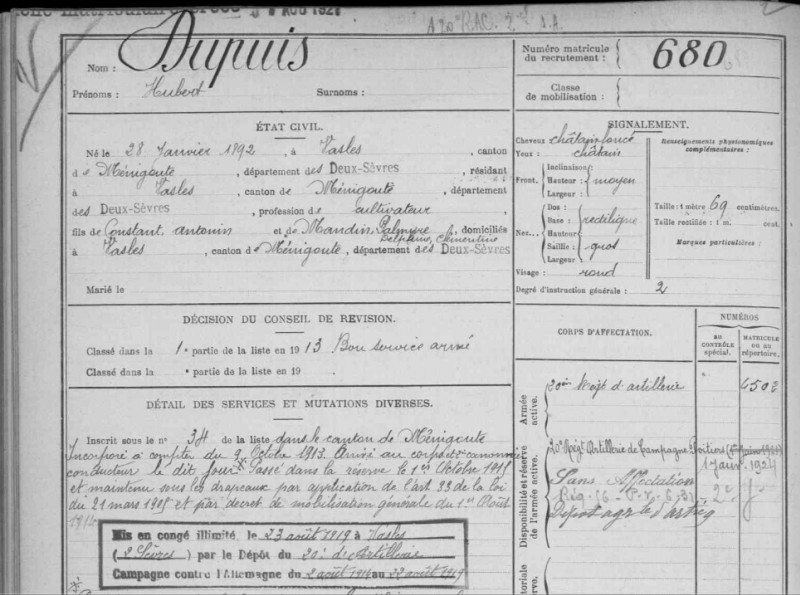 AOU 1921
A 20e RAC. 2e S.A.
Nom : Dupuis
Prénoms : Hubert Surnoms :
Numéro matricule du recrutement : 680
Classe de mobilisation :
ÉTAT CIVIL.
Né le 28 Janvier 1892, à Vasles, canton
de Ménigoute, département des Deux-Sèvres, résidant
à Vasles, canton de Ménigoute, département
des Deux-Sèvres, profession de cultivateur
fils de Constant, Antonin et de Mandin Palmyre
Delphine, Clémentine, domiciliés
à Vasles, canton de Ménigoute, département des Deux-Sèvres
Marié le
SIGNALEMENT.
Cheveux châtain foncé
Yeux : châtain
Front. Inclinaison :
Hauteur : moyen
Largeur :
Nez... Dos :
Base : rectiligne
Hauteur
Saillie : gros
Largeur
Visage : rond
Renseignements physionomiques complémentaires :
Taille : 1 mètre 69 centimètres.
Taille rectifiée : 1 m. cent.
Marques particulières :
Degré d'instruction générale : 2
DÉCISION DU CONSEIL DE REVISION.
Classé dans la 1e partie de la liste en 1913 Bon service armé
Classé dans la e partie de la liste en 19
DÉTAIL DES SERVICES ET MUTATIONS DIVERSES.
Inscrit sous le n° 34 de la liste dans le canton de Ménigoute
Incorporé à compter du 9 Octobre 1913. Arrivé au corps et canonnier
conducteur le dit jour. Passé dans la réserve le 1er Octobre 1915
et maintenu sous les drapeaux par application de l'art 33 de la loi
du 21 mars 1905 et par décret de mobilisation générale du 1er Août
1914
Mis en congé illimité, le 23 août 1919 à Vasles
(2 Sèvres) par le Dépôt du 20e d'Artillerie
Campagne contre l'Allemagne du 2 août 1914 au 22 août 1919
CORPS D'AFFECTATION.
NUMÉROS
EN CONTRÔLE spécial.
MATRICULE OU AU répertoire.
Armée active.
20ème Régt d'artillerie 4502
Disponibilité et réserve de l'armée active.
20e Régt Artillerie de Campagne Poitiers
1 Janv. 1924
Sans Affectation
Dépôt
toriale